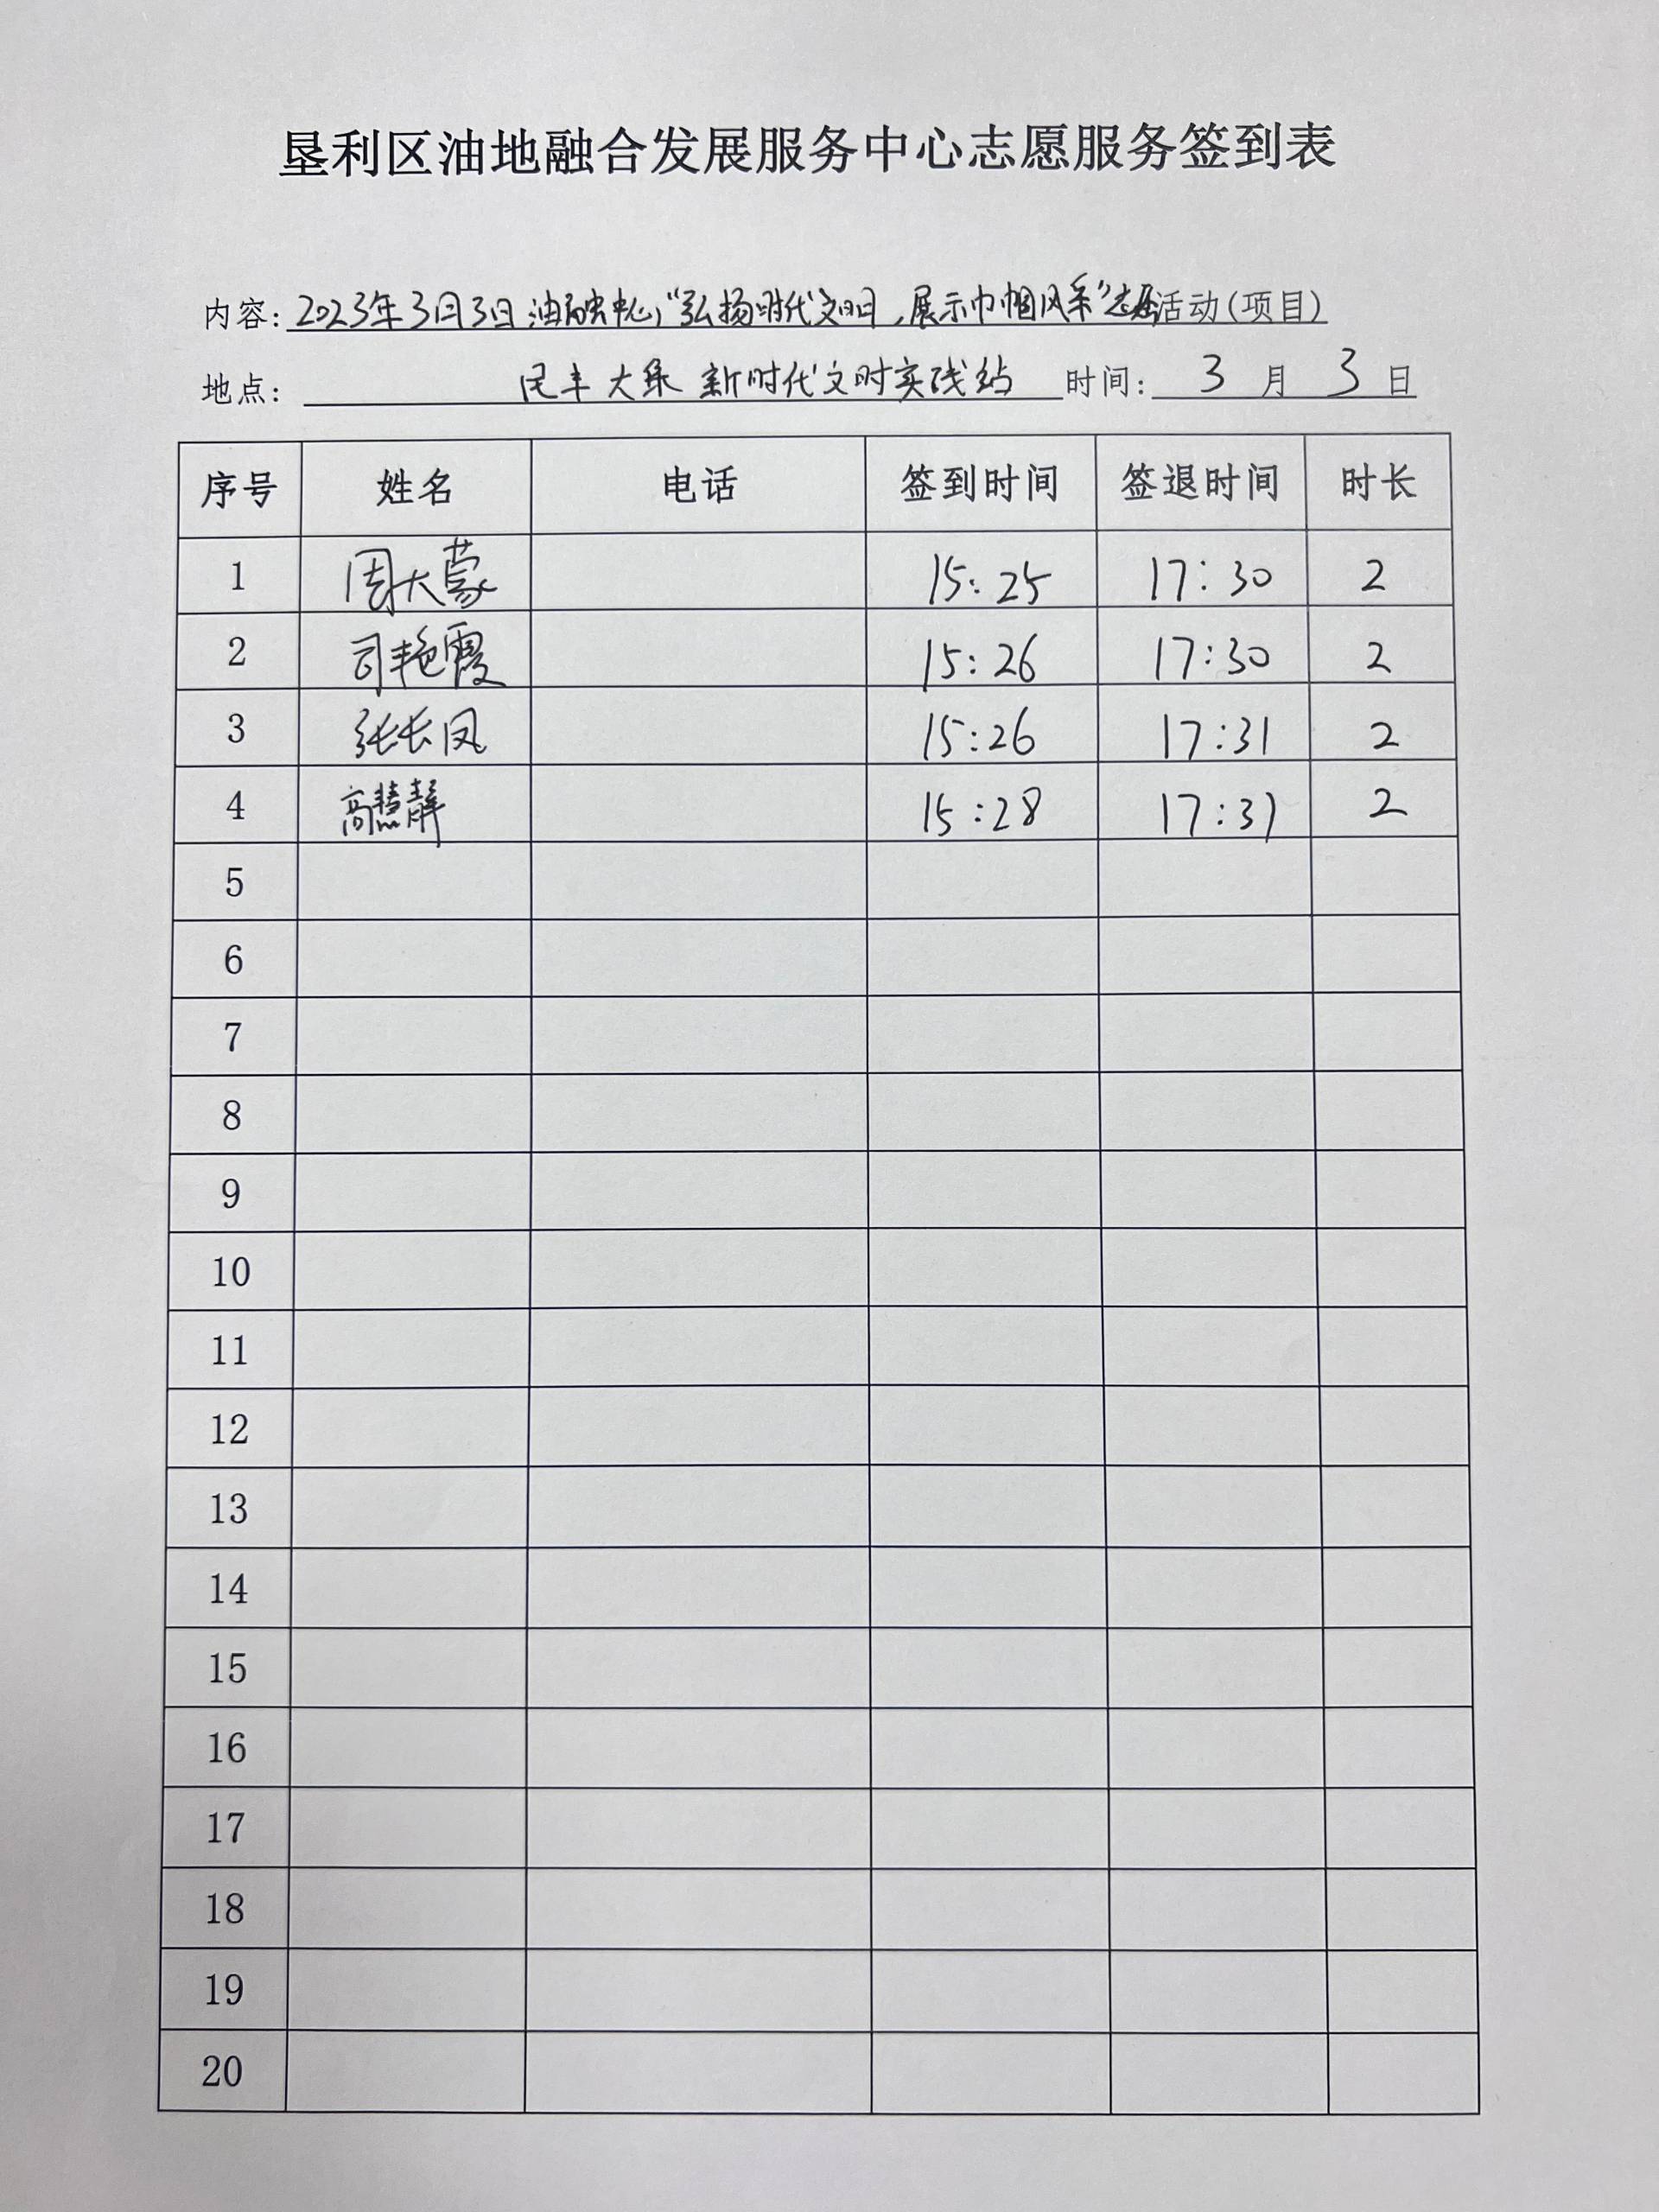 垦利区油地融合发展服务中心志愿服务签到表
内容: 2023年3月3日油融中心“弘扬时代文明,展示巾帼风采”志愿活动(项目)
地点: 民丰大集新时代文明实践站 时间: 3月3日
序号 姓名 电话 签到时间 签退时间 时长
1 周大蒙 15:25 17:30 2
2 司艳霞 15:26 17:30 2
3 张长凤 15:26 17:31 2
4 高慧静 15:28 17:31 2
5
6
7
8
9
10
11
12
13
14
15
16
17
18
19
20